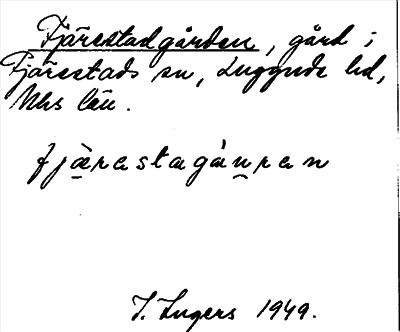 Fjärestadgården, gård i
Fjärestads sn, Luggude hd,
Mhs län.
fjærestagånren
I. Ingers 1949.